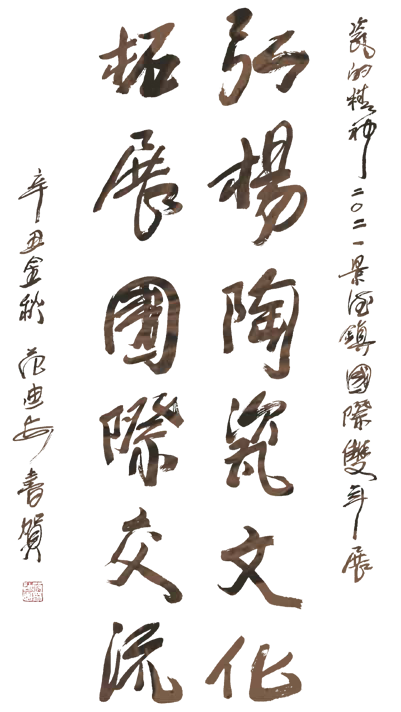 瓷的精神二〇二一景德鎮國際雙年展
弘楊陶瓷文化
拓展國際交流
辛丑金秋范迪安書賀